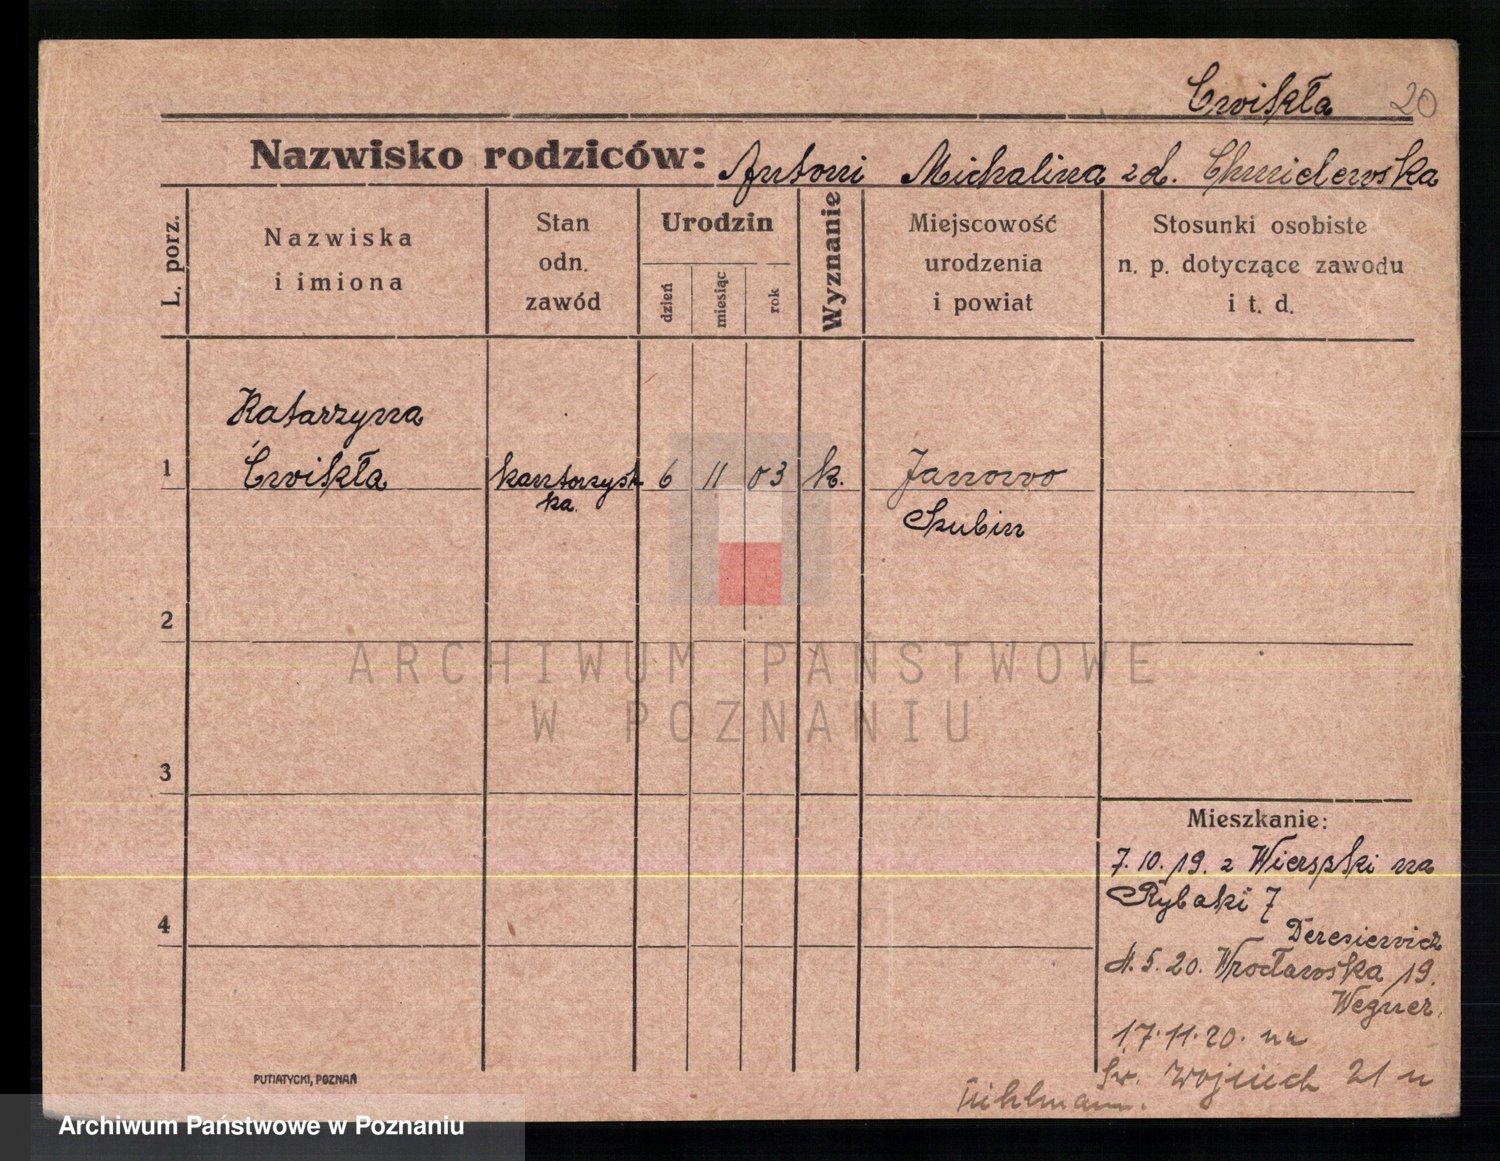 Ćwikła 20
Nazwisko rodziców: Antoni Michalina zd. Chmielewska
L. porz.
Nazwiska
i imiona
Stan
odn.
zawód
Urodzin
dzień
miesiąc
rok
Wyznanie
Miejscowość
urodzenia
i powiat
Stosunki osobiste
n. p. dotyczące zawodu
i t. d.
Katarzyna
1 Ćwikła kantorzyst 6 11 03 k. Janowo
ka. Szubin
2
ARCHIWUM PAŃSTWOWE
W POZNANIU
3
Mieszkanie:
7.10.19. z Wierspski na
Rybaki 7
4
Deresiewicz
4.5.20. Wrocławska 19.
Wegner.
17.11.20. na
Św. Wojciech 21 u
PUTIATYCKI, POZNAŃ
Archiwum Państwowe w Poznaniu